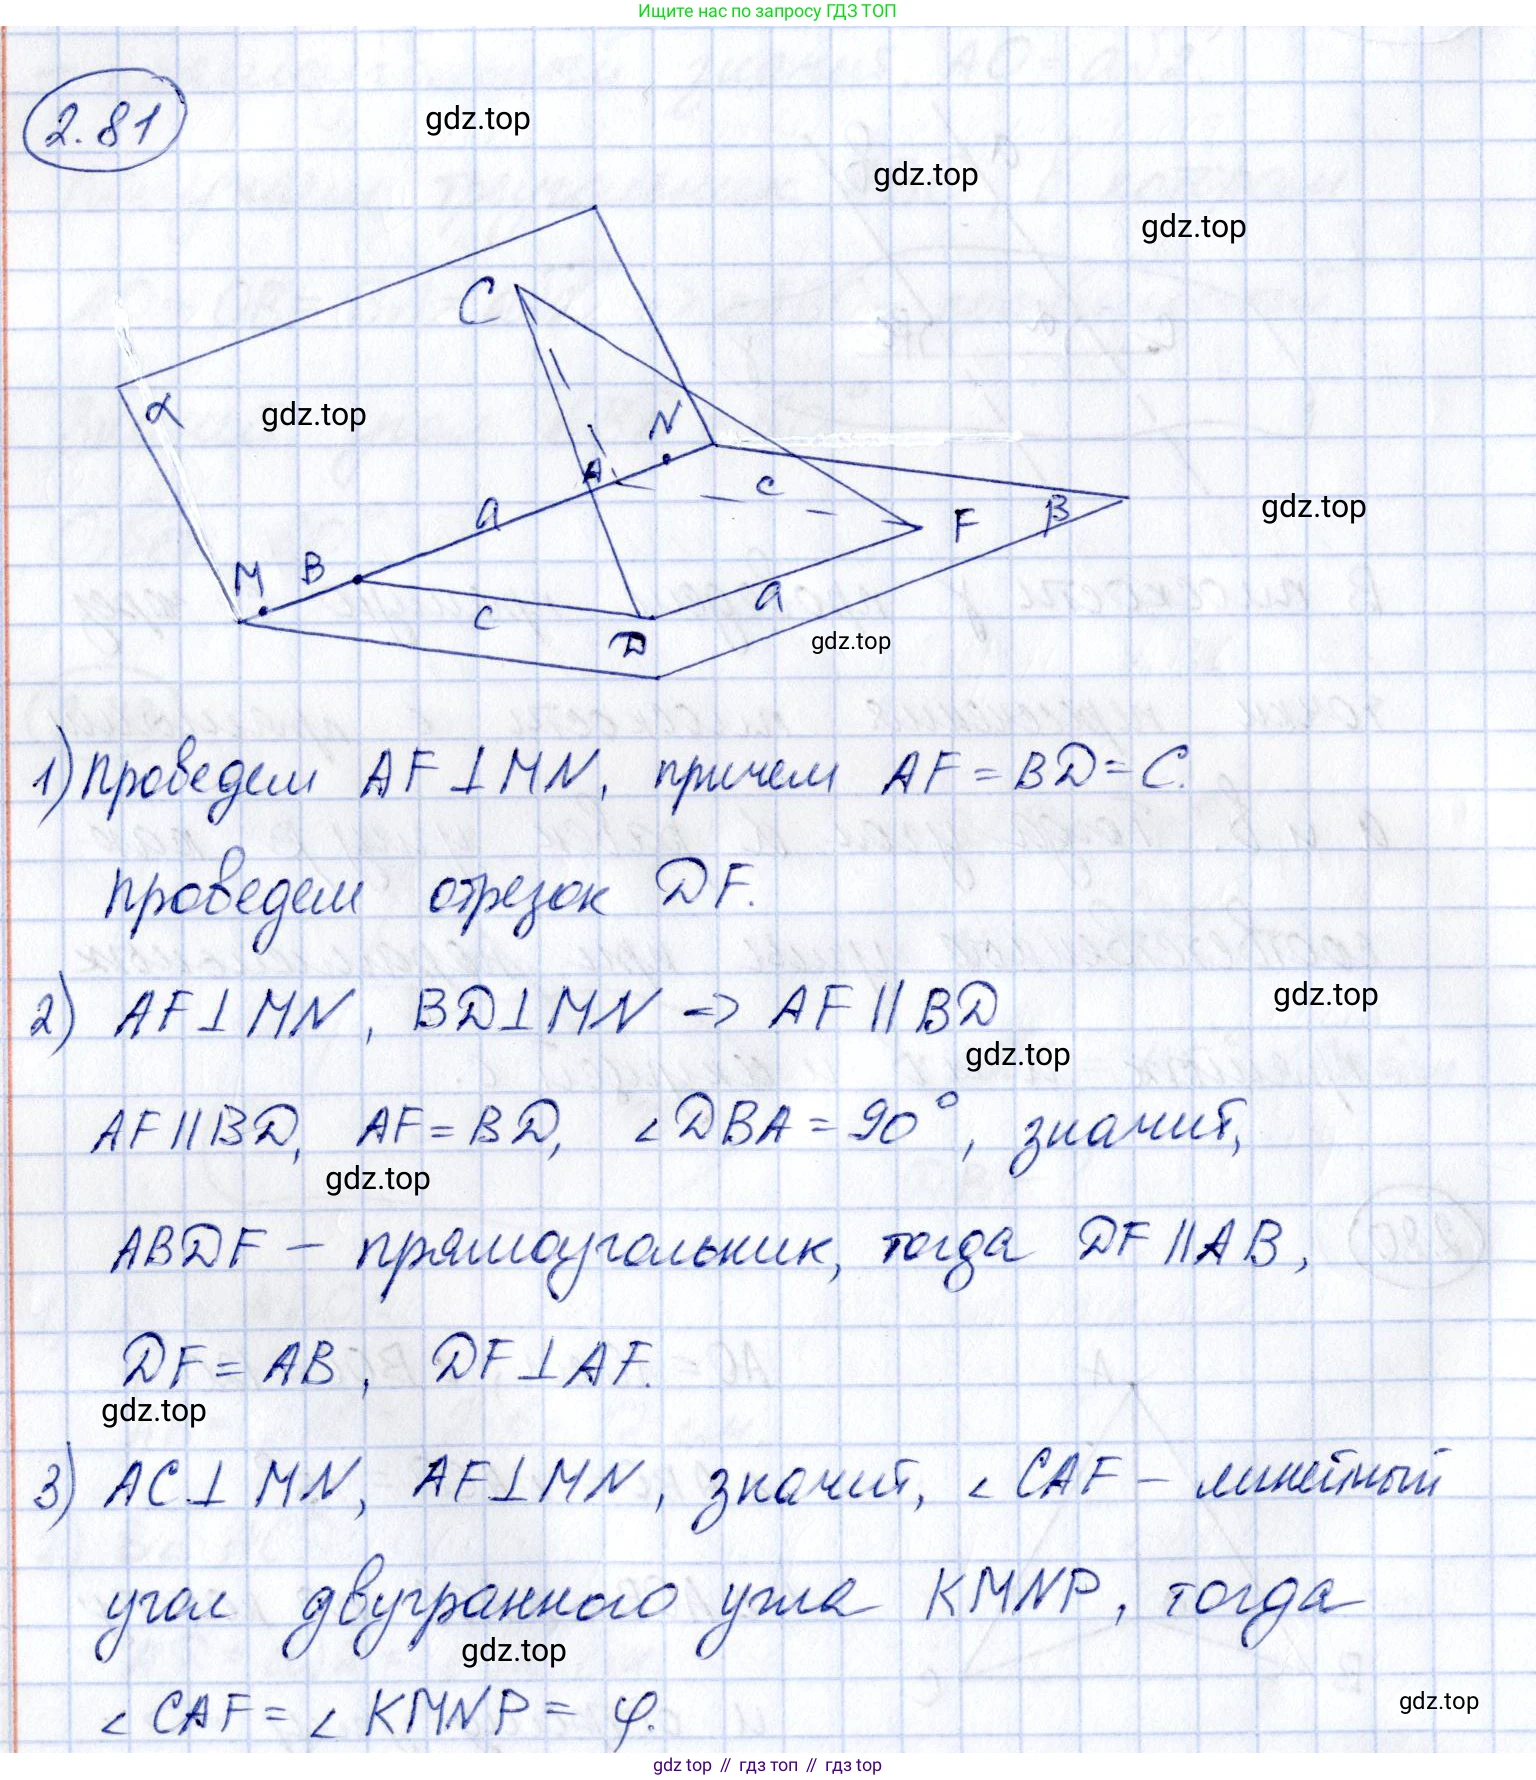 Ищите нас по запросу ГДЗ ТОП
2.81
gdz.top
gdz.top
gdz.top
C
α
gdz.top
N
A
c
a
F
β
gdz.top
M
B
a
c
D
gdz.top
1) Проведем AF ⊥ MN, причем AF = BD = C.
проведем отрезок DF.
2) AF ⊥ MN, BD ⊥ MN => AF || BD
gdz.top
gdz.top
AF || BD, AF = BD, ∠DBA = 90°, значит,
gdz.top
ABDF – прямоугольник, тогда DF || AB,
DF = AB, DF ⊥ AF.
gdz.top
3) AC ⊥ MN, AF ⊥ MN, значит, ∠CAF – линейный
угол двугранного угла KMNP, тогда
gdz.top
∠CAF = ∠KMNP = φ.
gdz.top
gdz top // гдз топ // гдз top